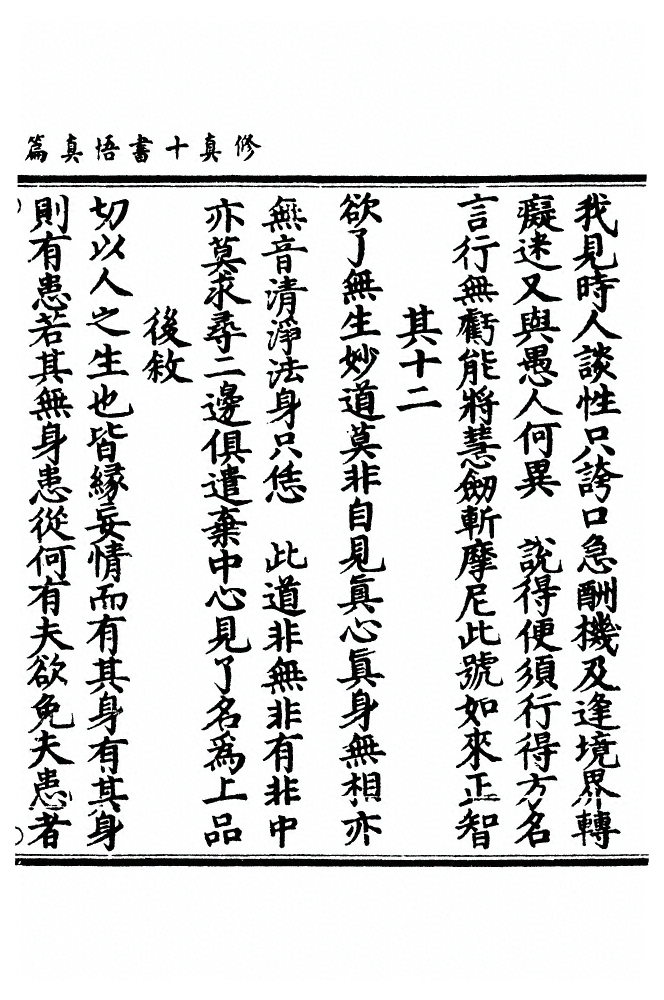 修真十書悟真篇
我見時人談性只誇口急酬機及逢境界轉
癡迷又與愚人何異　說得便須行得方名
言行無虧能將慧劒斬摩尼此號如來正智
其十二
欲了無生妙道莫非自見眞心眞身無相亦
無音清淨法身只恁　此道非無非有非中
亦莫求尋二邊俱遣棄中心見了名爲上品
後敘
切以人之生也皆緣妄情而有其身有其身
則有患若其無身患從何有夫欲免夫患者